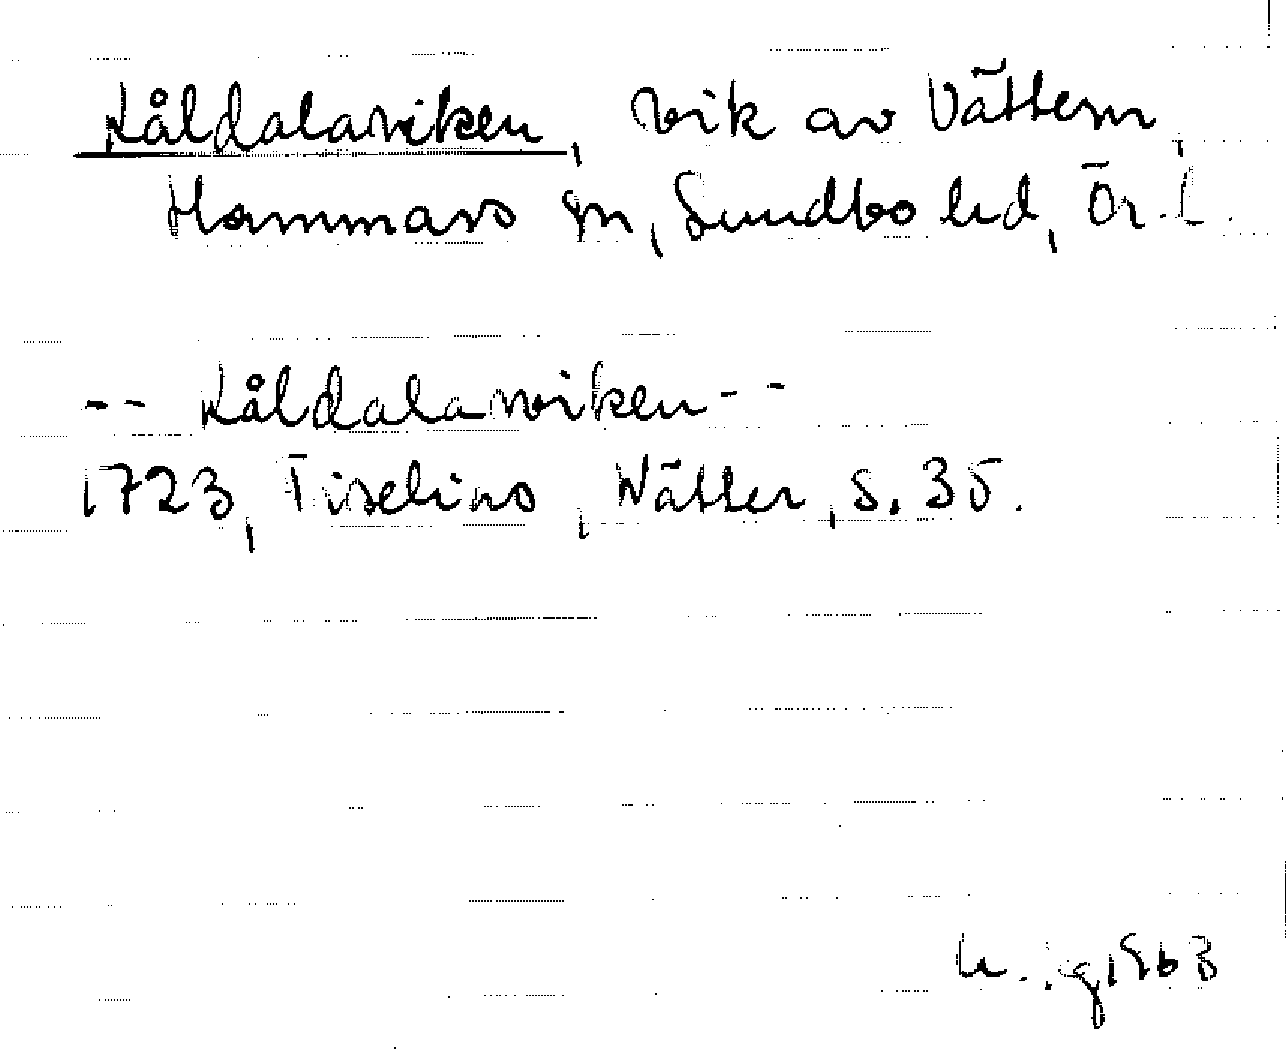 Kåldalaviken, vik av Vättern,
Hammars sn, Sundbo hd, Ör. l.
-- Kåldalawiken --
1723, Tiselius, Wätter, s. 35.
1963